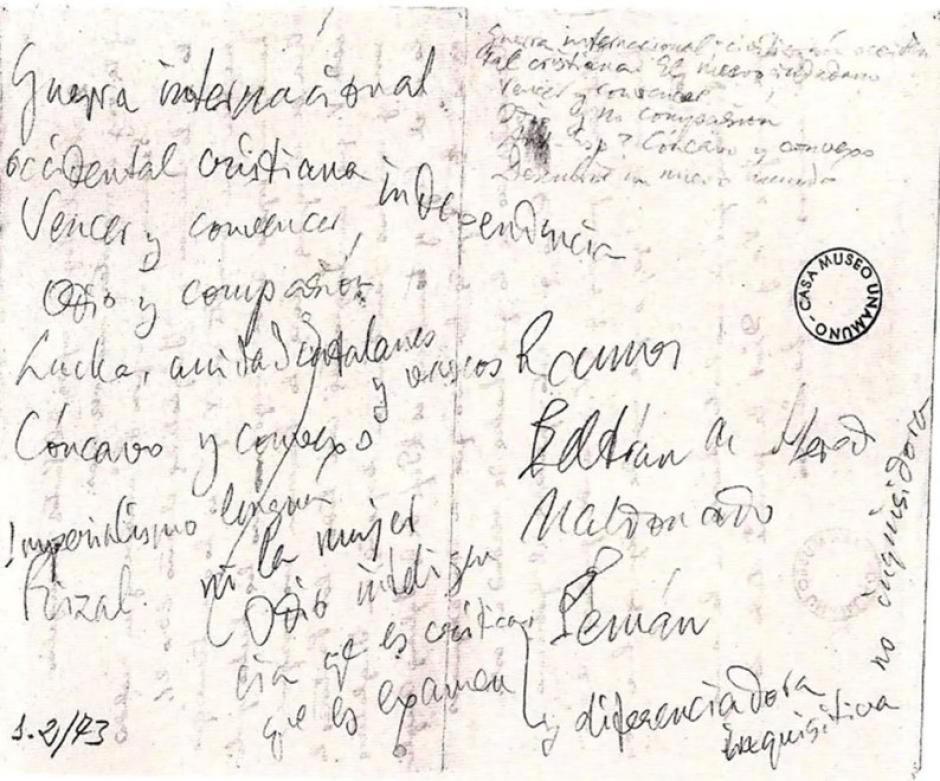 Guerra internacional
occidental cristiana
independencia
Vencer y convencer,
Odio y compasión
Lucha, unidad, catalanes
y vascos
Cóncavo y convexo
Imperialismo lengua
Rizal. ni la mujer
Odio inteligen
cia que es crítica
que es examen
y diferenciadora
inquisitiva
no inquisidora
1.2/73
Guerra internacional civilización occiden
tal cristiana
Vencer y convencer
Odio y no compasión
Cóncavo y convexo
Descubrir un nuevo mundo
CASA MUSEO UNAMUNO
Ramos
Beltrán de Hered
Maldonado
Pemán